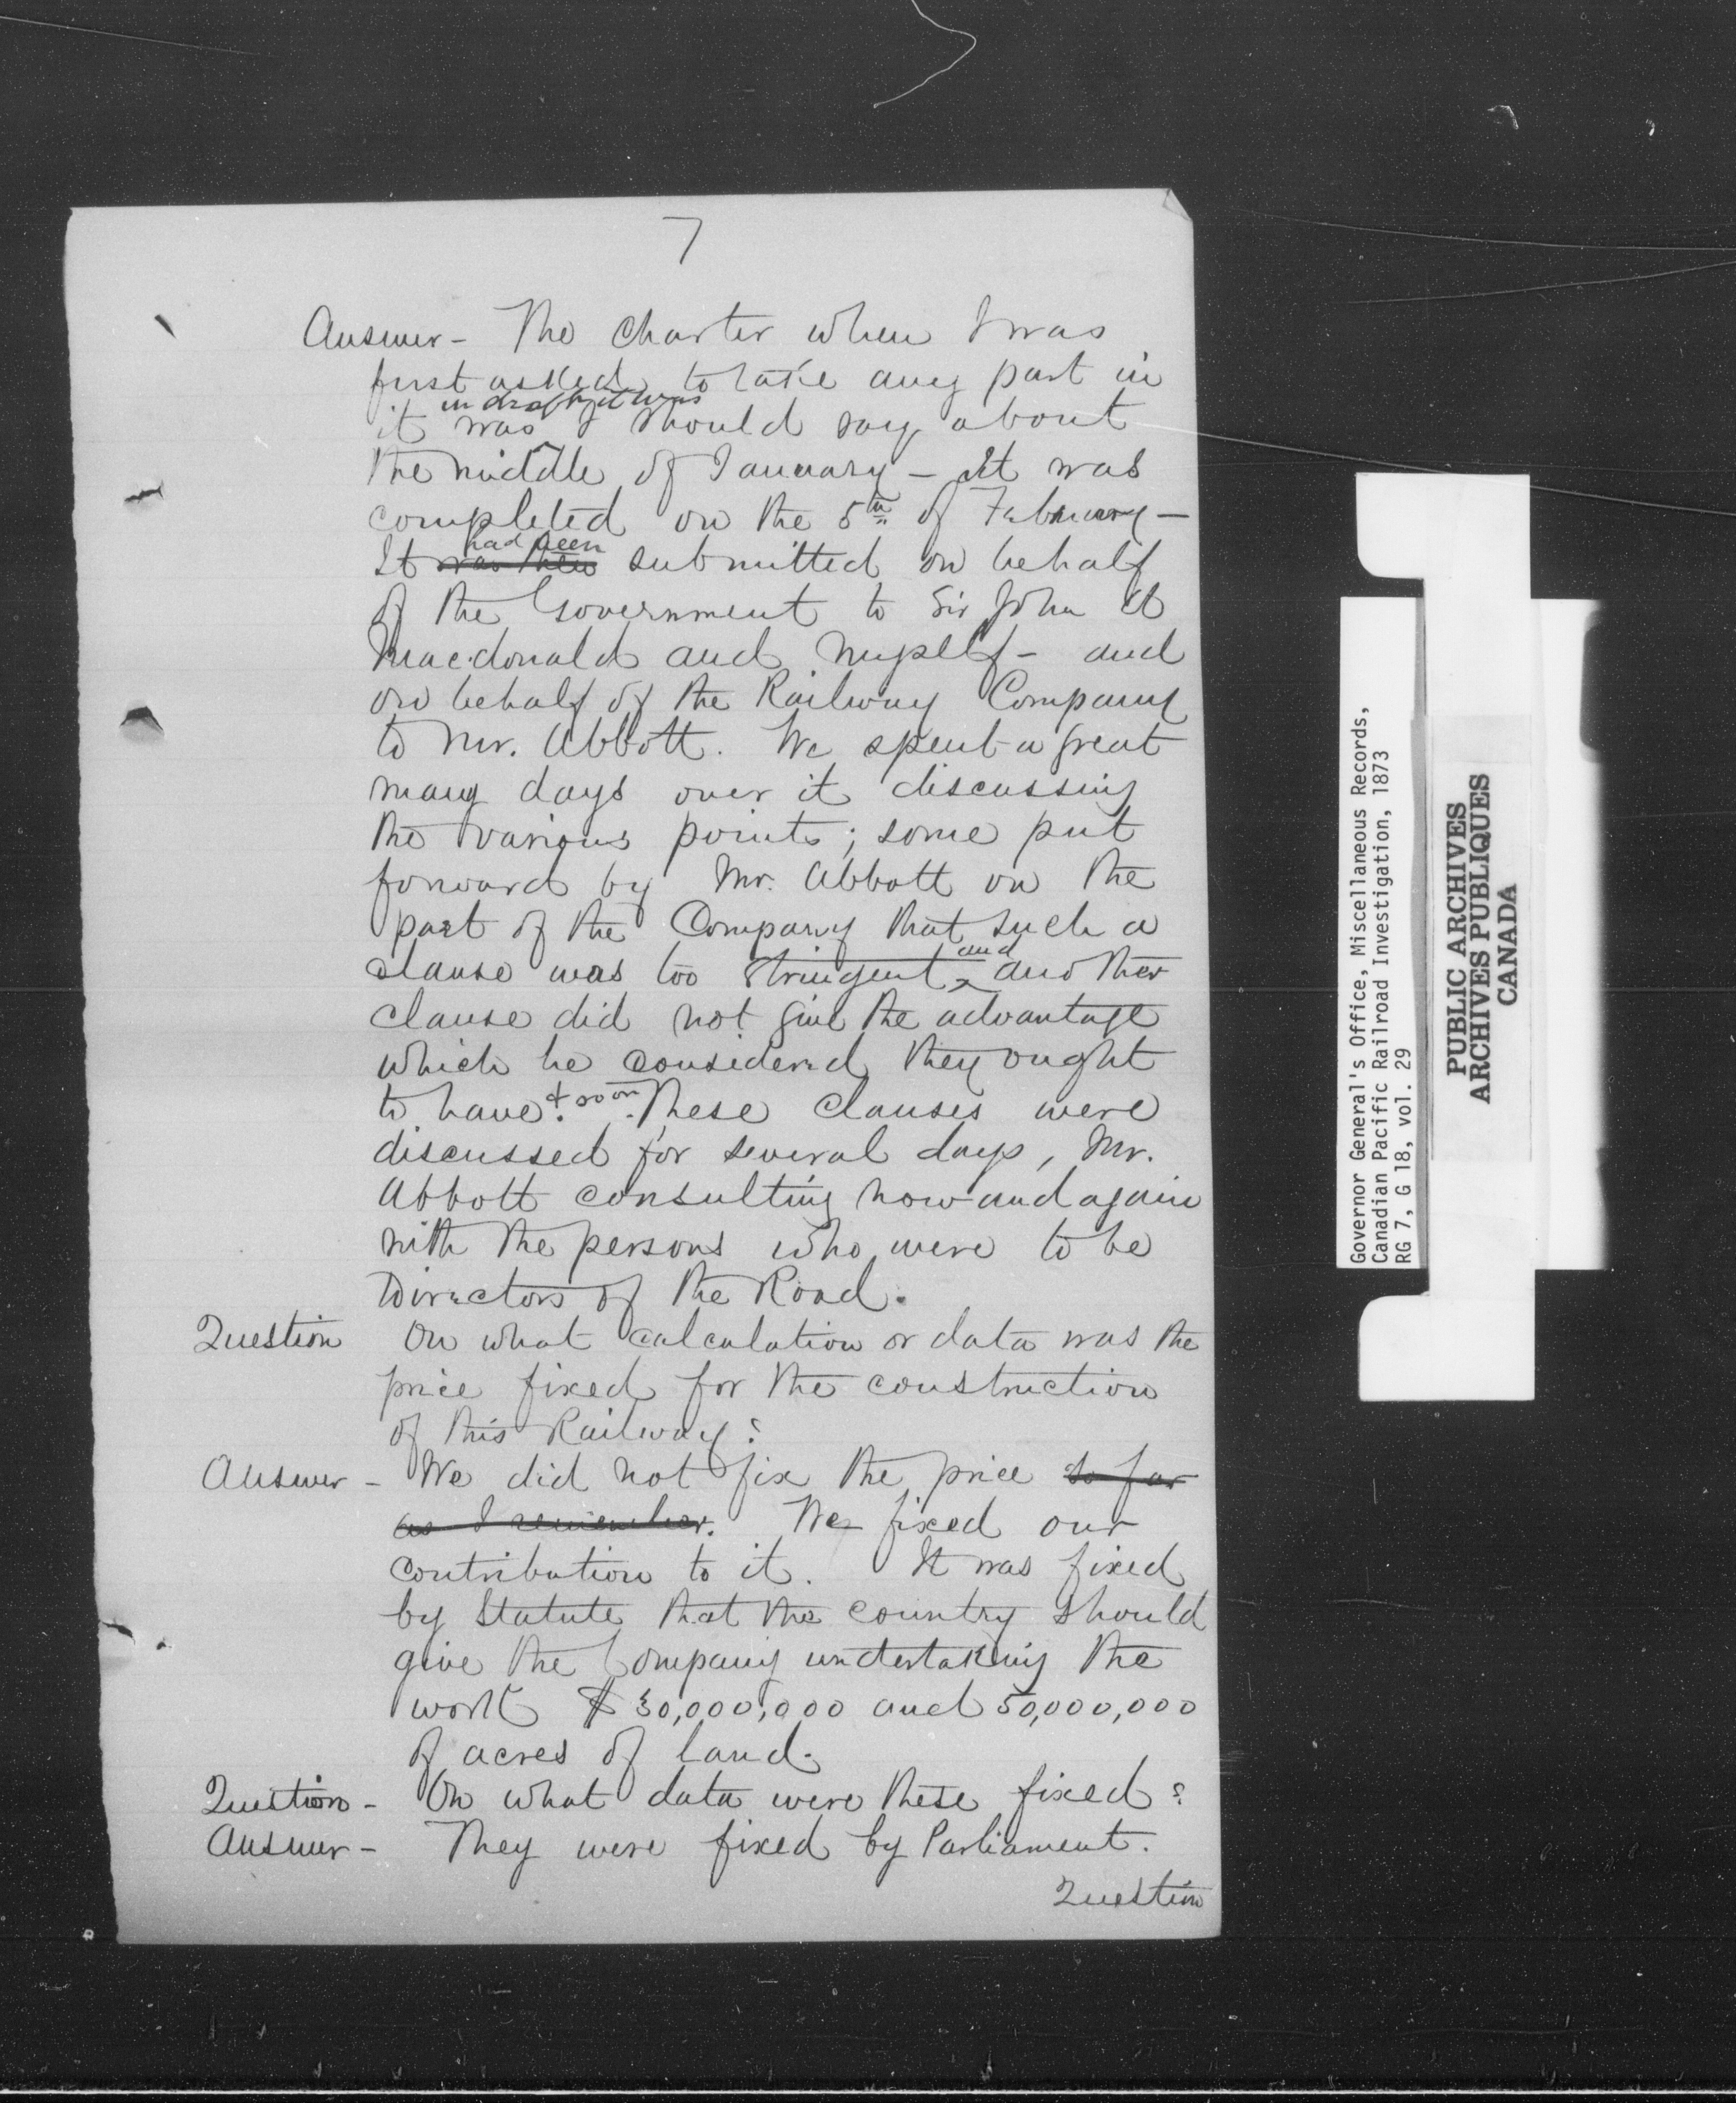 7
Answer - The Charter when I was
first asked to take any part in
in draft, it was
it was I should say about
the middle of January - It was
completed on the 5th of February -
had been
It was then submitted on behalf
of the Government to Sir John A
Macdonald and myself - and
on behalf of the Railway Company
to Mr. Abbott. We spent a great
many days over it discussing
the various points; some put
forward by Mr. Abbott on the
part of the Company that such a
and
clause was too stringent ^ another
clause did not give the advantage
which he considered they ought
to have. & so on. These clauses were
discussed for several days, Mr.
Abbott consulting now and again
with the persons who were to be
Directors of the Road.
Question On what calculation or data was the
price fixed for the construction
of this Railway?
Answer - We did not fix the price so far
as I remember. We fixed our
contribution to it. It was fixed
by Statute that the country should
give the Company undertaking the
work $30,000,000 and 50,000,000
of acres of land.
Question - On what data were these fixed?
Answer - They were fixed by Parliament.
Question
Governor General's Office, Miscellaneous Records,
Canadian Pacific Railroad Investigation, 1873
RG 7, G 18, vol. 29
PUBLIC ARCHIVES
ARCHIVES PUBLIQUES
CANADA